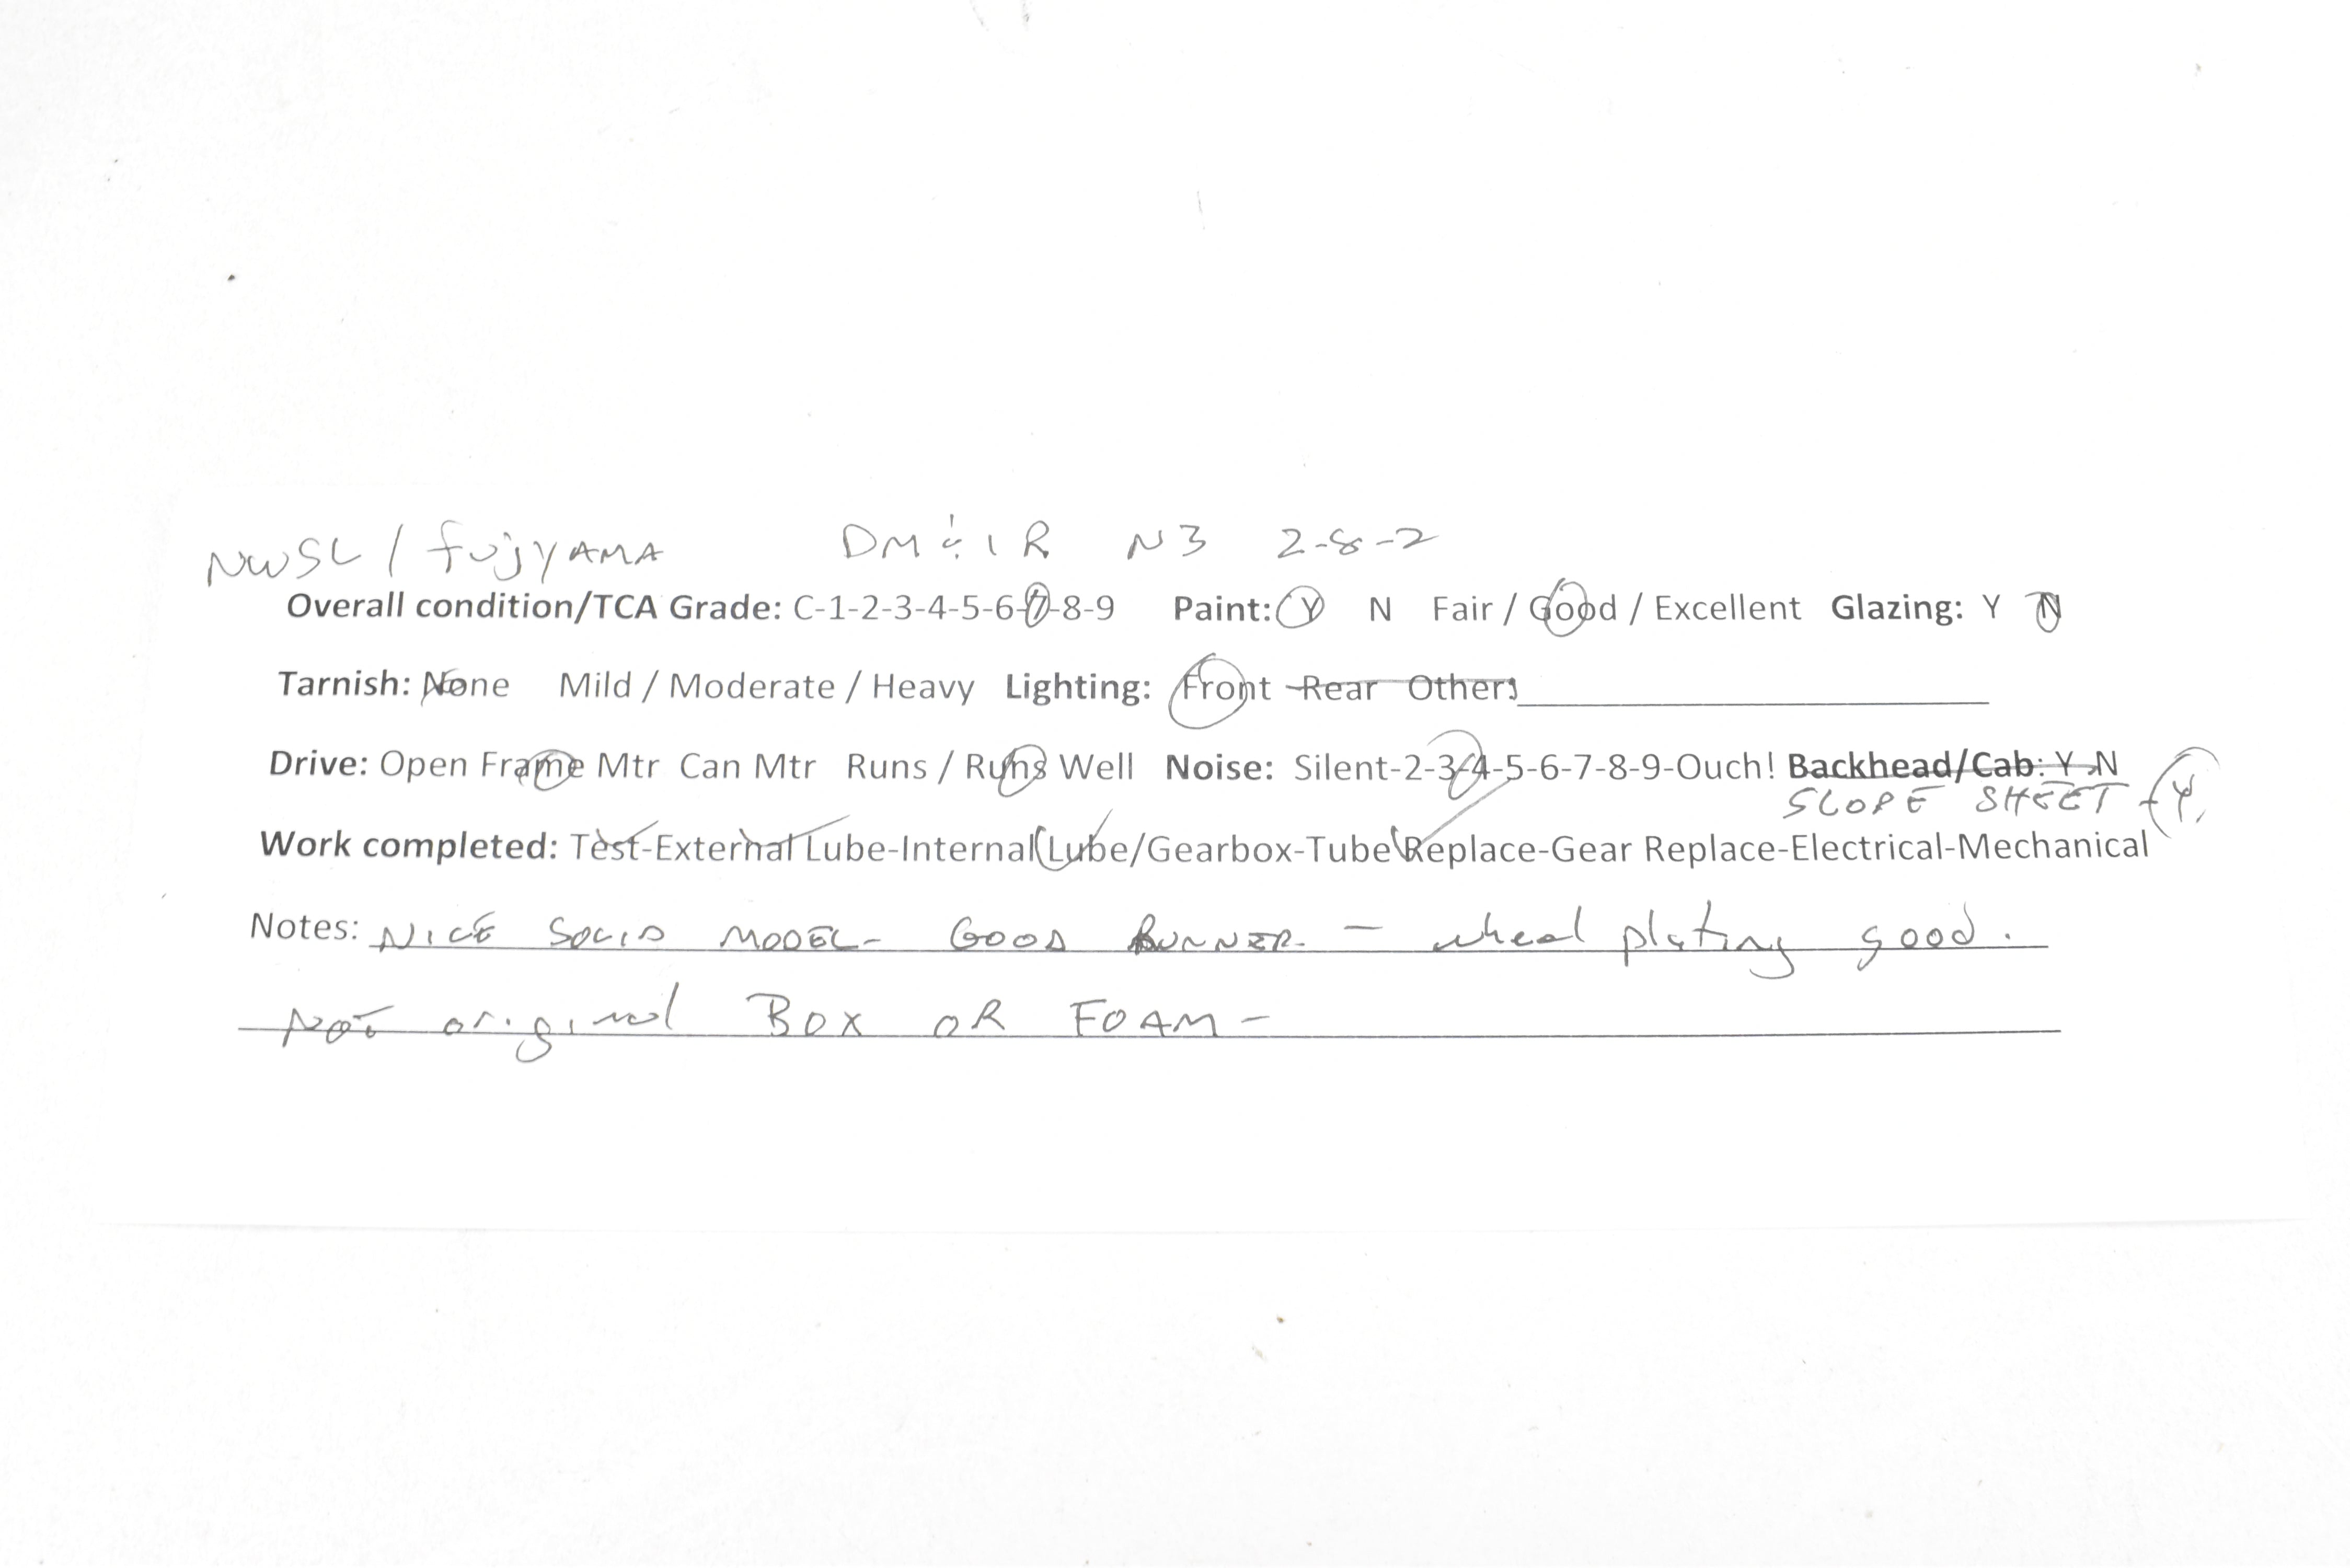 NWSL / fujYAMA DM & IR N3 2-8-2
Overall condition/TCA Grade: C-1-2-3-4-5-6-7-8-9 Paint: Y N Fair / Good / Excellent Glazing: Y N
Tarnish: None Mild / Moderate / Heavy Lighting: Front Rear Others
Drive: Open Frame Mtr Can Mtr Runs / Runs Well Noise: Silent-2-3-4-5-6-7-8-9-Ouch! Backhead/Cab: Y N
SCOPE SHEET - Y
Work completed: Test-External Lube-Internal Lube/Gearbox-Tube Replace-Gear Replace-Electrical-Mechanical
Notes: NICE SOLID MODEL - GOOD RUNNER - wheel plating good.
Not original BOX OR FOAM -